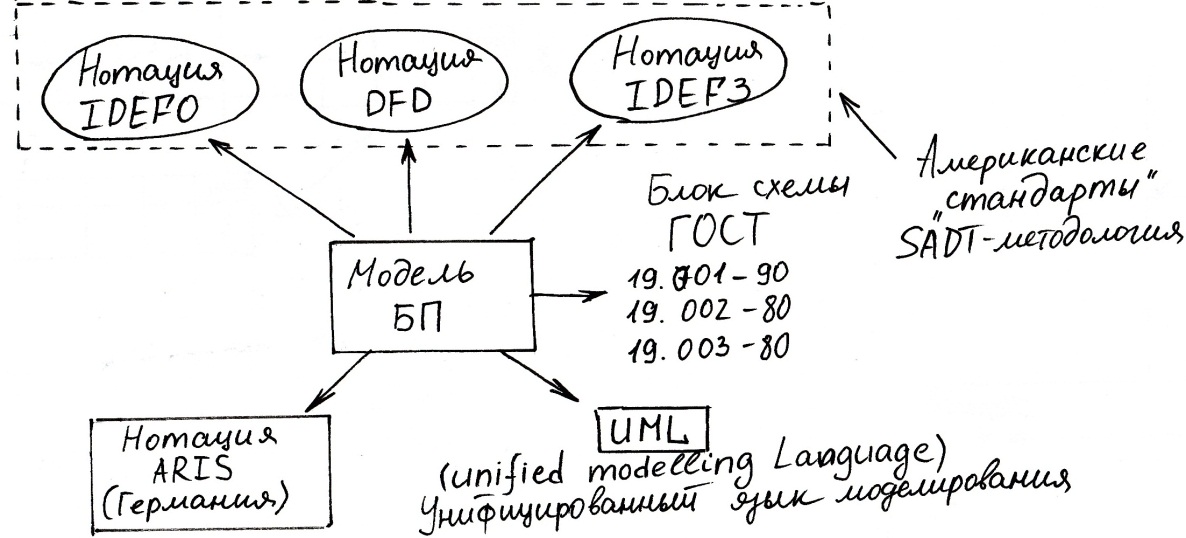 Нотация
IDEF0
Нотация
DFD
Нотация
IDEF3
Американские
"стандарты"
SADT-методология
Блок схемы
ГОСТ
19.701-90
19.002-80
19.003-80
Модель
БП
Нотация
ARIS
(Германия)
UML
(unified modelling Language)
Унифицированный язык моделирования